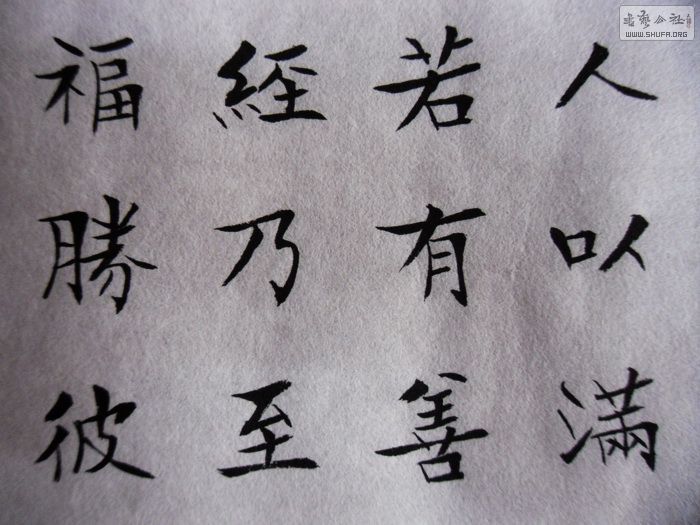 人以滿
若有善
經乃至
福勝彼
書藝公社
WWW.SHUFA.ORG